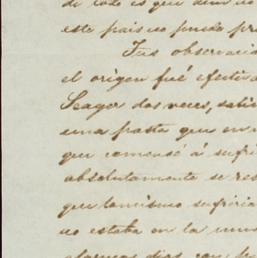 de todo es que
este país no puedo
Sus observacio
el origen fué efectiva
Seager dos veces, sabi
una pasta que en
que comensé á sufri
absolutamente se res
que tantísimo sufriria
no estaba en la
algunos dias, que